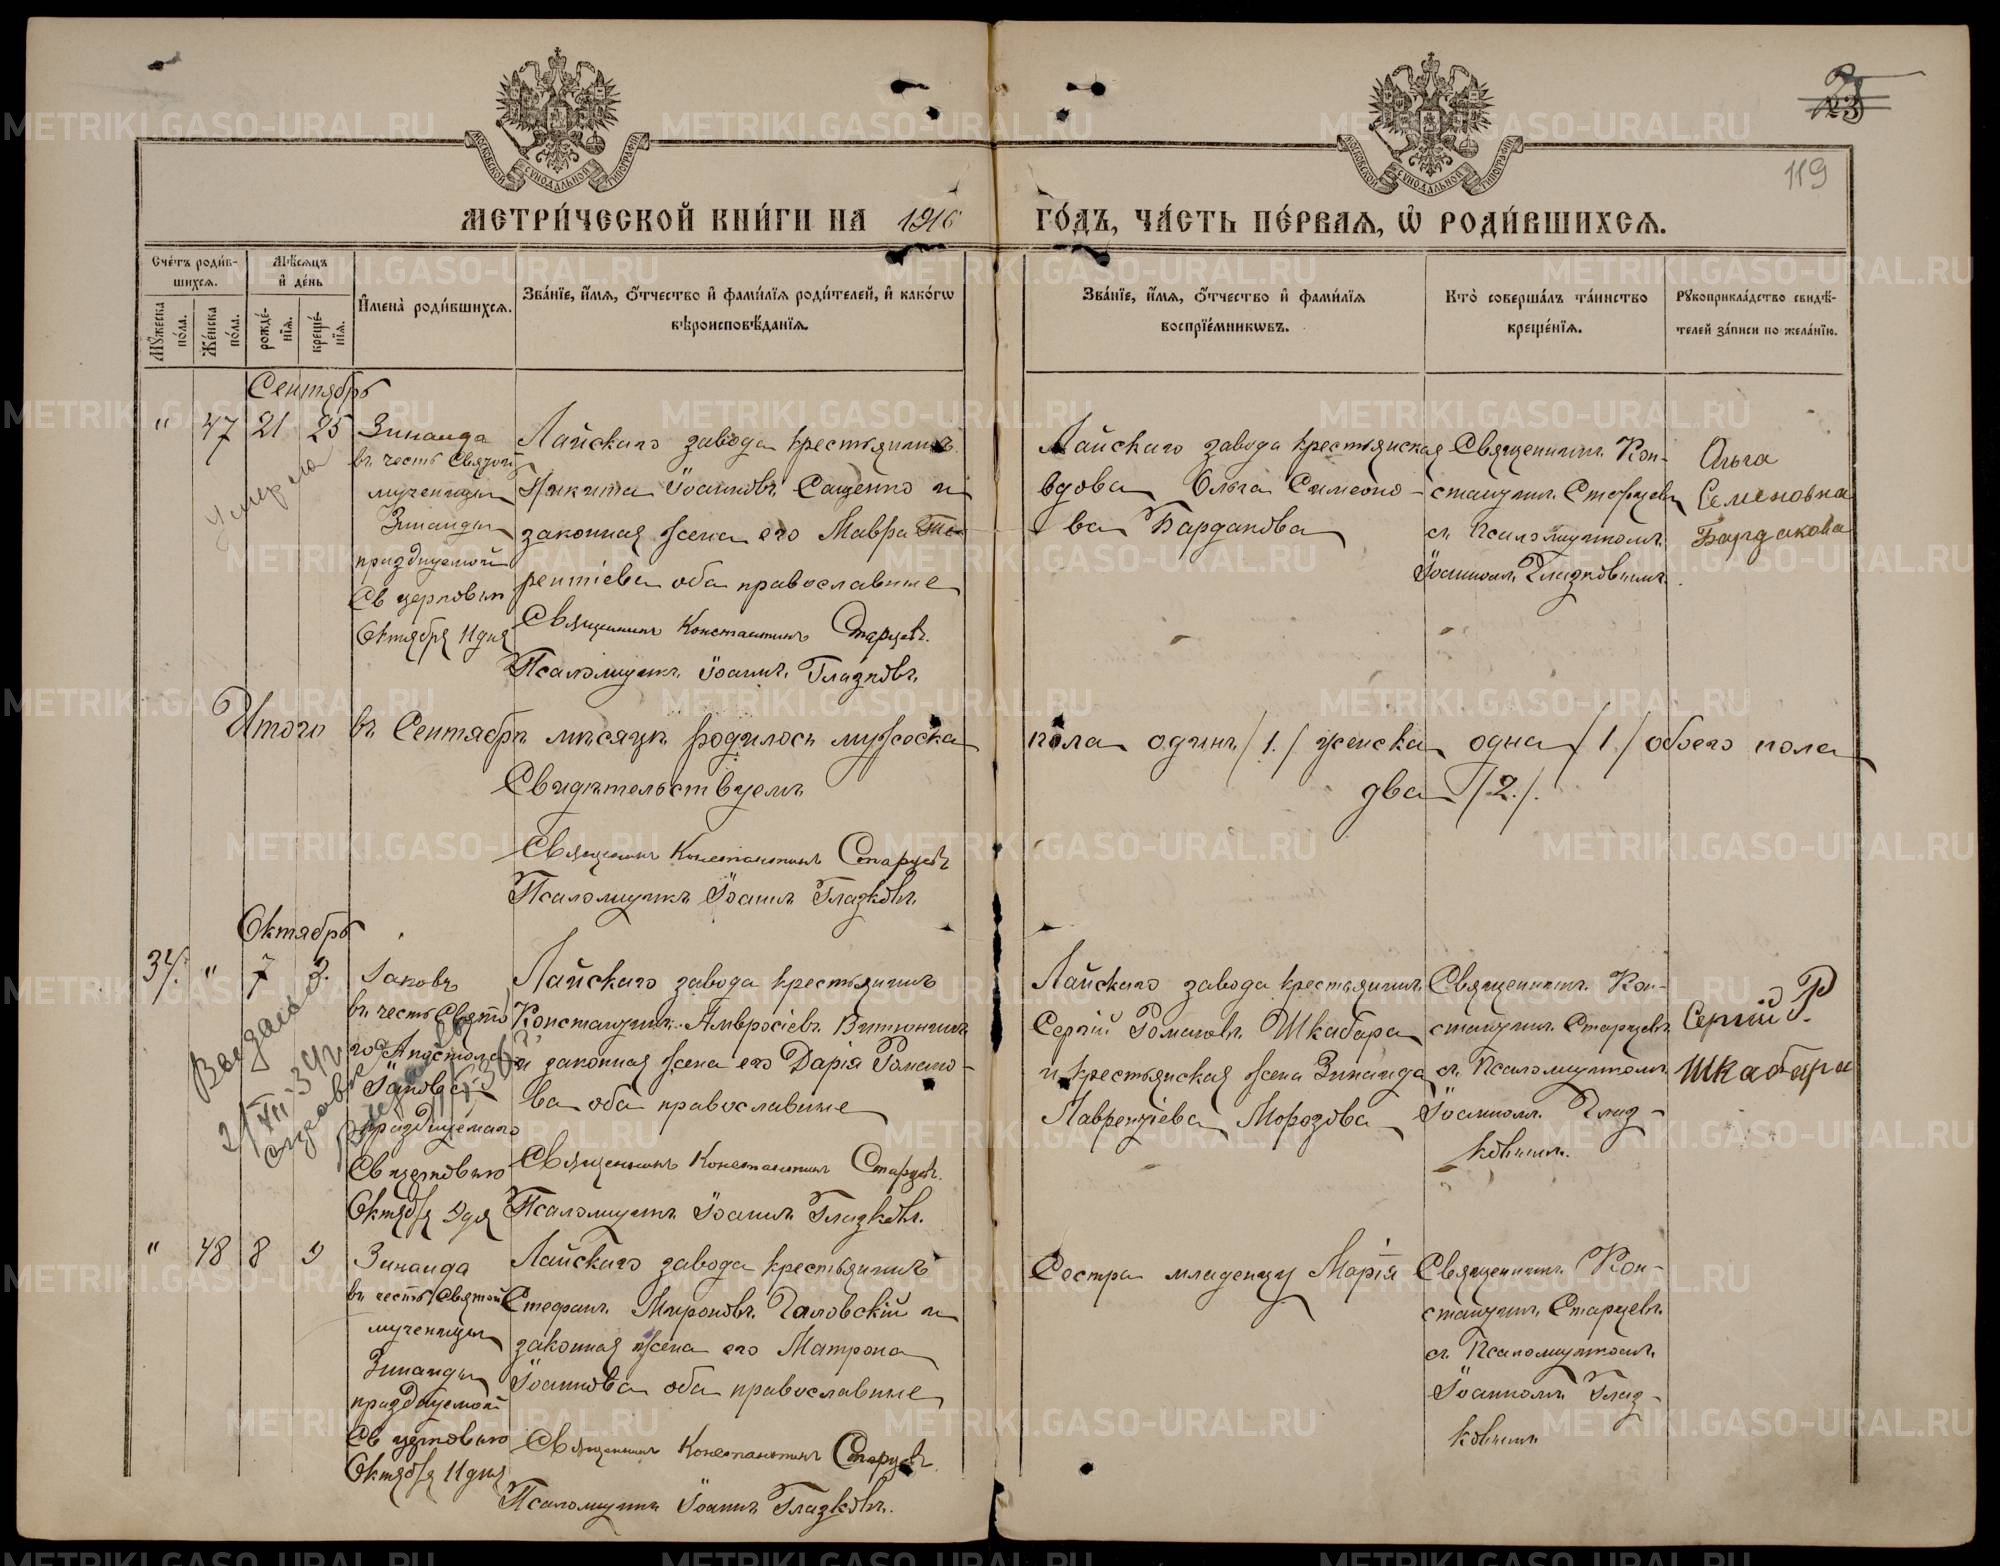 МОСКОВСКОЙ СѴНОДАЛЬНОЙ ТИПОГРАФІИ
МОСКОВСКОЙ СѴНОДАЛЬНОЙ ТИПОГРАФІИ
119
МЕТРИ́ЧЕСКОЙ КНИ́ГИ НА 1916 ГО́ДЪ, ЧА́СТЬ ПЕ́РВАЯ, Ѡ РОДИ́ВШИХСЯ.
Сче́тъ роди́в-
шихся.
Мꙋ́жеска по́ла.
Же́нска по́ла.
Мѣ́сяцъ
и де́нь
рожде́-нїя.
креще́-нїя.
Имена̀ роди́вшихся.
Зва́нїе, и́мя, ѻ́тчество и фами́лїя роди́телей, и како́гѡ
вѣроисповѣ́данїя.
Зва́нїе, и́мя, ѻ́тчество и фами́лїя
воспрїе́мникѡвъ.
Кто̀ соверша́лъ та́инство
креще́нїя.
Рꙋкоприкла́дство свидѣ́-
телей за́писи по жела́нїю.
Сентябрь
" 47 21 25
Умерла
Зинаида
въ честь Святой
мученицы
Зинаиды
празднуемой
Св церковью
Октября 11 дня
Лайскаго завода крестьянинъ
Никита Іоанновъ Сащенко и
законная жена его Мавра Те-
рентіева оба православные
Священникъ Константинъ Старцевъ.
Псаломщикъ Іоаннъ Глазковъ.
Лайскаго завода крестьянская
вдова Ольга Симеоно-
ва Бардакова
Священникъ Кон-
стантинъ Старцевъ
съ Псаломщикомъ
Іоанномъ Глазковымъ.
Ольга
Семеновна
Бардакова
Итого въ Сентябрѣ мѣсяцѣ родилось мужеска пола одинъ /1./ женска одна /1./ обоего пола
два /2./.
Свидѣтельствуемъ
Священникъ Константинъ Старцевъ
Псаломщикъ Іоаннъ Глазковъ.
Октябрь
34. " 7 9.
Іаковъ
въ честь Свято
го Апостола
Іакова
празднуемаго
Св церковью
Октября 9 дня
Лайскаго завода крестьянинъ
Константинъ Амвросіевъ Витюнинъ
и законная жена его Дарія Романо-
ва оба православные
Священникъ Константинъ Старцевъ.
Псаломщикъ Іоаннъ Глазковъ.
Лайскаго завода крестьянинъ
Сергій Романовъ Шкабара
и крестьянская жена Зинаида
Лаврентіева Морозова
Священникъ Кон-
стантинъ Старцевъ
съ Псаломщикомъ
Іоанномъ Глаз-
ковымъ.
Сергій Р.
Шкабара
" 48 8 9
Зинаида
въ честь Святой
мученицы
Зинаиды
празднуемой
Св церковью
Октября 11 дня
Лайскаго завода крестьянинъ
Стефанъ Мироновъ Чаловскій и
законная жена его Матрона
Іоаннова оба православные
Священникъ Константинъ Старцевъ.
Псаломщикъ Іоаннъ Глазковъ.
Сестра младенцу Марія
Священникъ Кон-
стантинъ Старцевъ
съ Псаломщикомъ
Іоанномъ Глаз-
ковымъ
METRIKI.GASO-URAL.RU